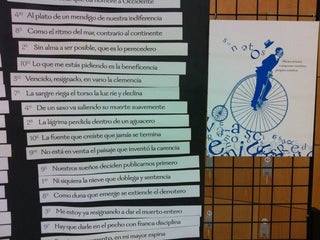 4º Al plato de un mendigo de nuestra indiferencia
8º Como el ritmo del mar, contrario al continente
2º Sin alma a ser posible, que es lo perecedero
10º Lo que me estás pidiendo es la beneficencia
3º Vencido, resignado, en vano la clemencia
7º La sangre riega el torso la luz ríe y declina
4º De un saxo va saliendo su muerte suavemente
2º La lágrima perdida dentro de un aguacero
10º La fuente que creíste que jamás se termina
9º No está en venta el paisaje que inventó la carencia
9º Nuestros sueños deciden publicarnos primero
1º Ni siquiera la nieve que doblega y sentencia
8º Como duna que emerge se extiende el derrotero
3º Me estoy ya resignando a dar el muerto entero
9º Hay que darle en el pecho con franca disciplina
en mi mayor espina
sonetos